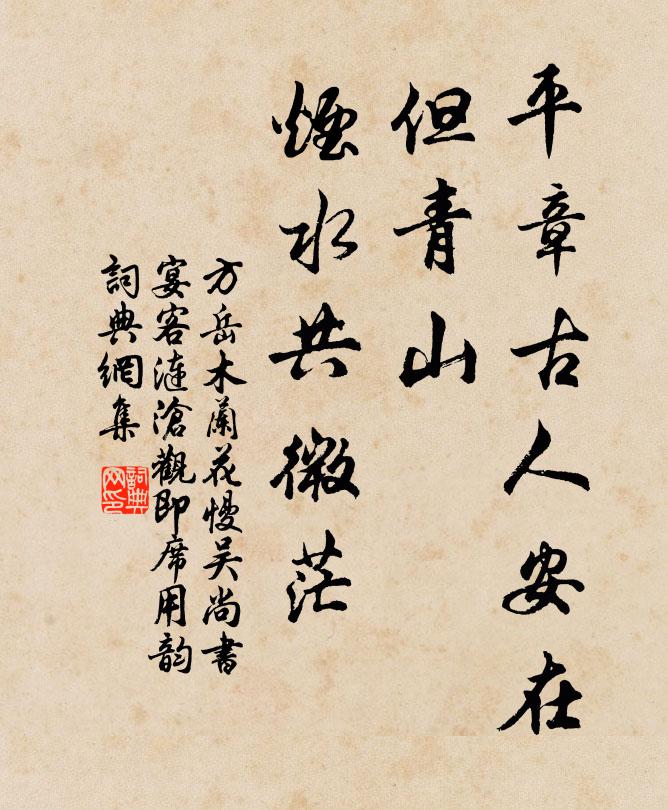 平章古人安在
但青山
煙水共微茫
方岳木蘭花慢吳尚書
宴客漣滄觀即席用韵
詞典網集
詞典網印